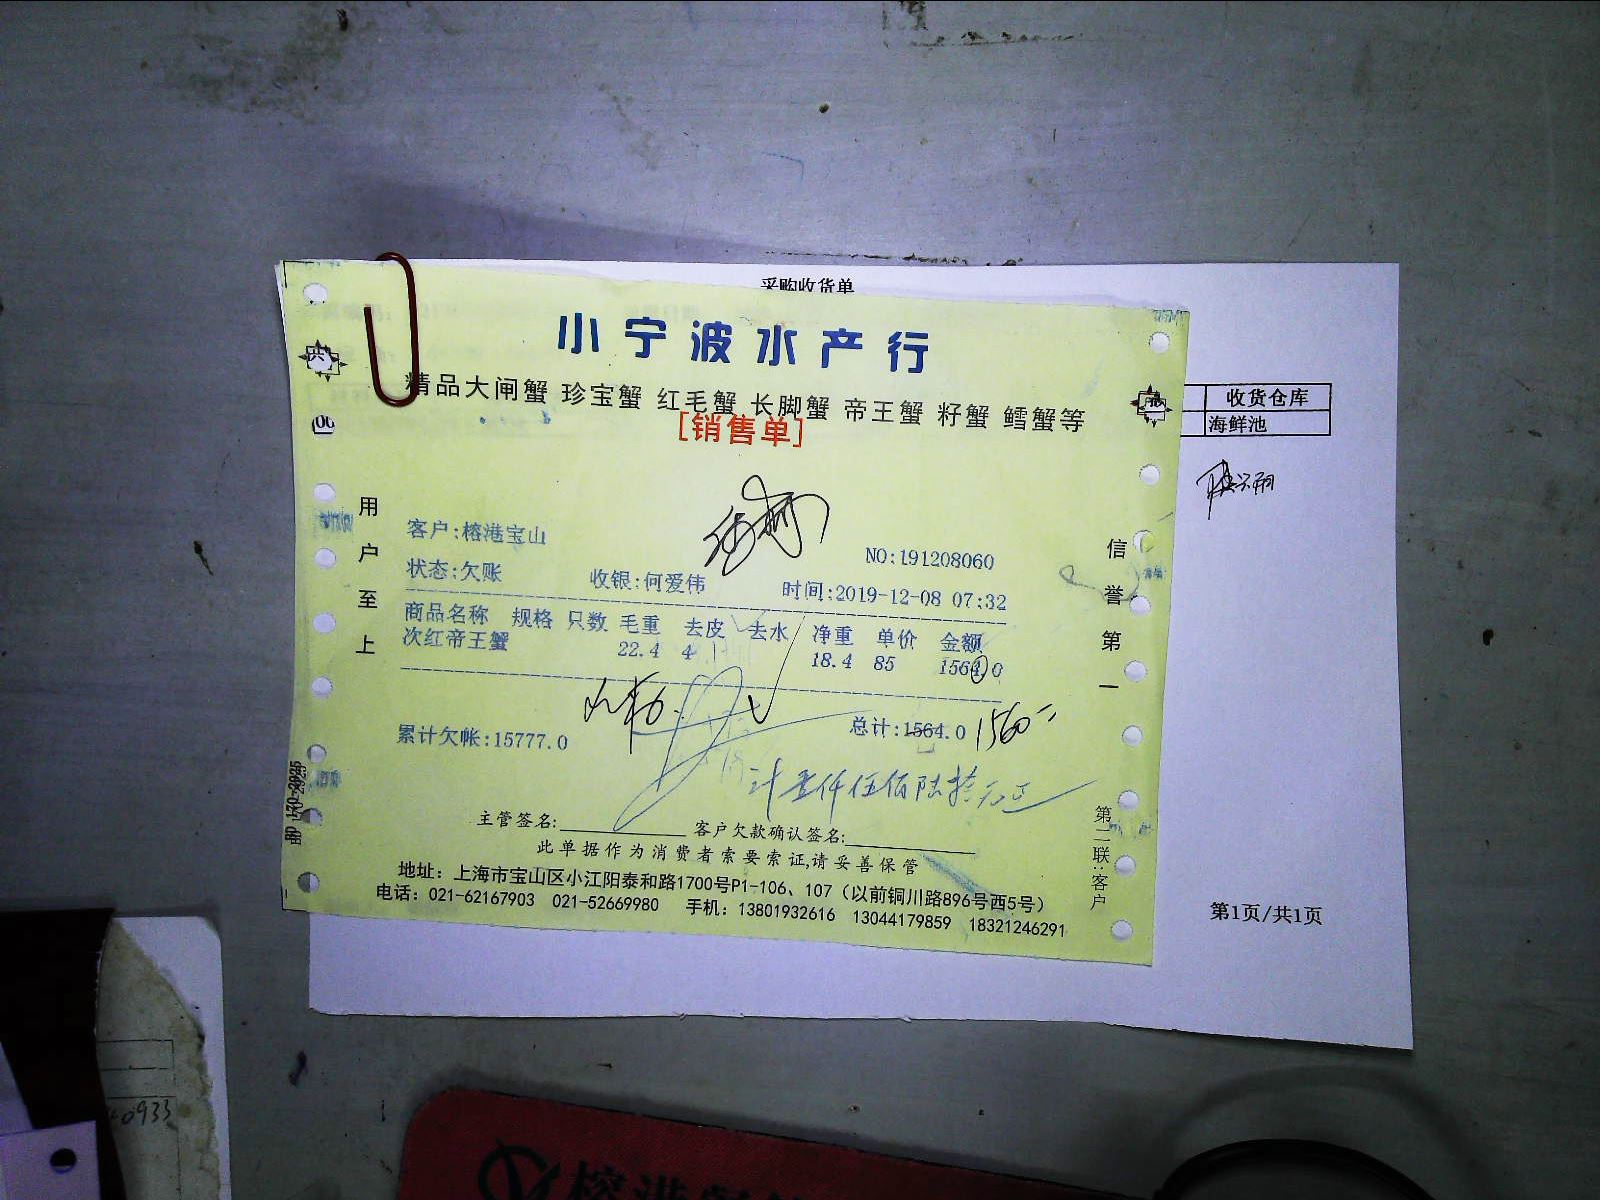 采购收货单
小宁波水产行
精品大闸蟹 珍宝蟹 红毛蟹 长脚蟹 帝王蟹 籽蟹 鳕蟹等
[销售单]
收货仓库
海鲜池
用户至上
信誉第一
客户:榕港宝山
NO:191208060
状态:欠账 收银:何爱伟 时间:2019-12-08 07:32
商品名称 规格 只数 毛重 去皮 去水 净重 单价 金额
次红帝王蟹 22.4 4 18.4 85 1564.0
累计欠帐:15777.0 总计:1564.0 1560
计壹仟伍佰陆拾元正
主管签名: 客户欠款确认签名:
此单据作为消费者索要索证,请妥善保管
地址:上海市宝山区小江阳泰和路1700号P1-106、107(以前铜川路896号西5号)
电话:021-62167903 021-52669980 手机:13801932616 13044179859 18321246291
第二联:客户
第1页/共1页
0933
榕港